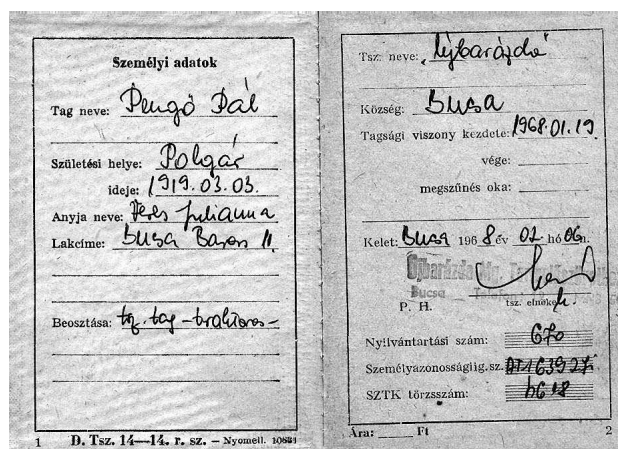 Személyi adatok
Tag neve: Pengő Pál
Születési helye: Polgár
ideje: 1919.03.03.
Anyja neve: Veres Julianna
Lakcíme: Bucsa Baross 11.
Beosztása: tsz. tag - traktoros -
1 D. Tsz. 14—14. r. sz. – Nyomell.
Tsz. neve: „Újbarázda"
Község: Bucsa
Tagsági viszony kezdete: 1968.01.19.
vége:
megszűnés oka:
Kelet: Bucsa 1968 év 02 hó 06 n.
Újbarázda Mg.
Bucsa
P. H. tsz. elnök
Nyilvántartási szám: 670
Személyazonosságiig. sz.
SZTK törzsszám:
Ára: Ft 2